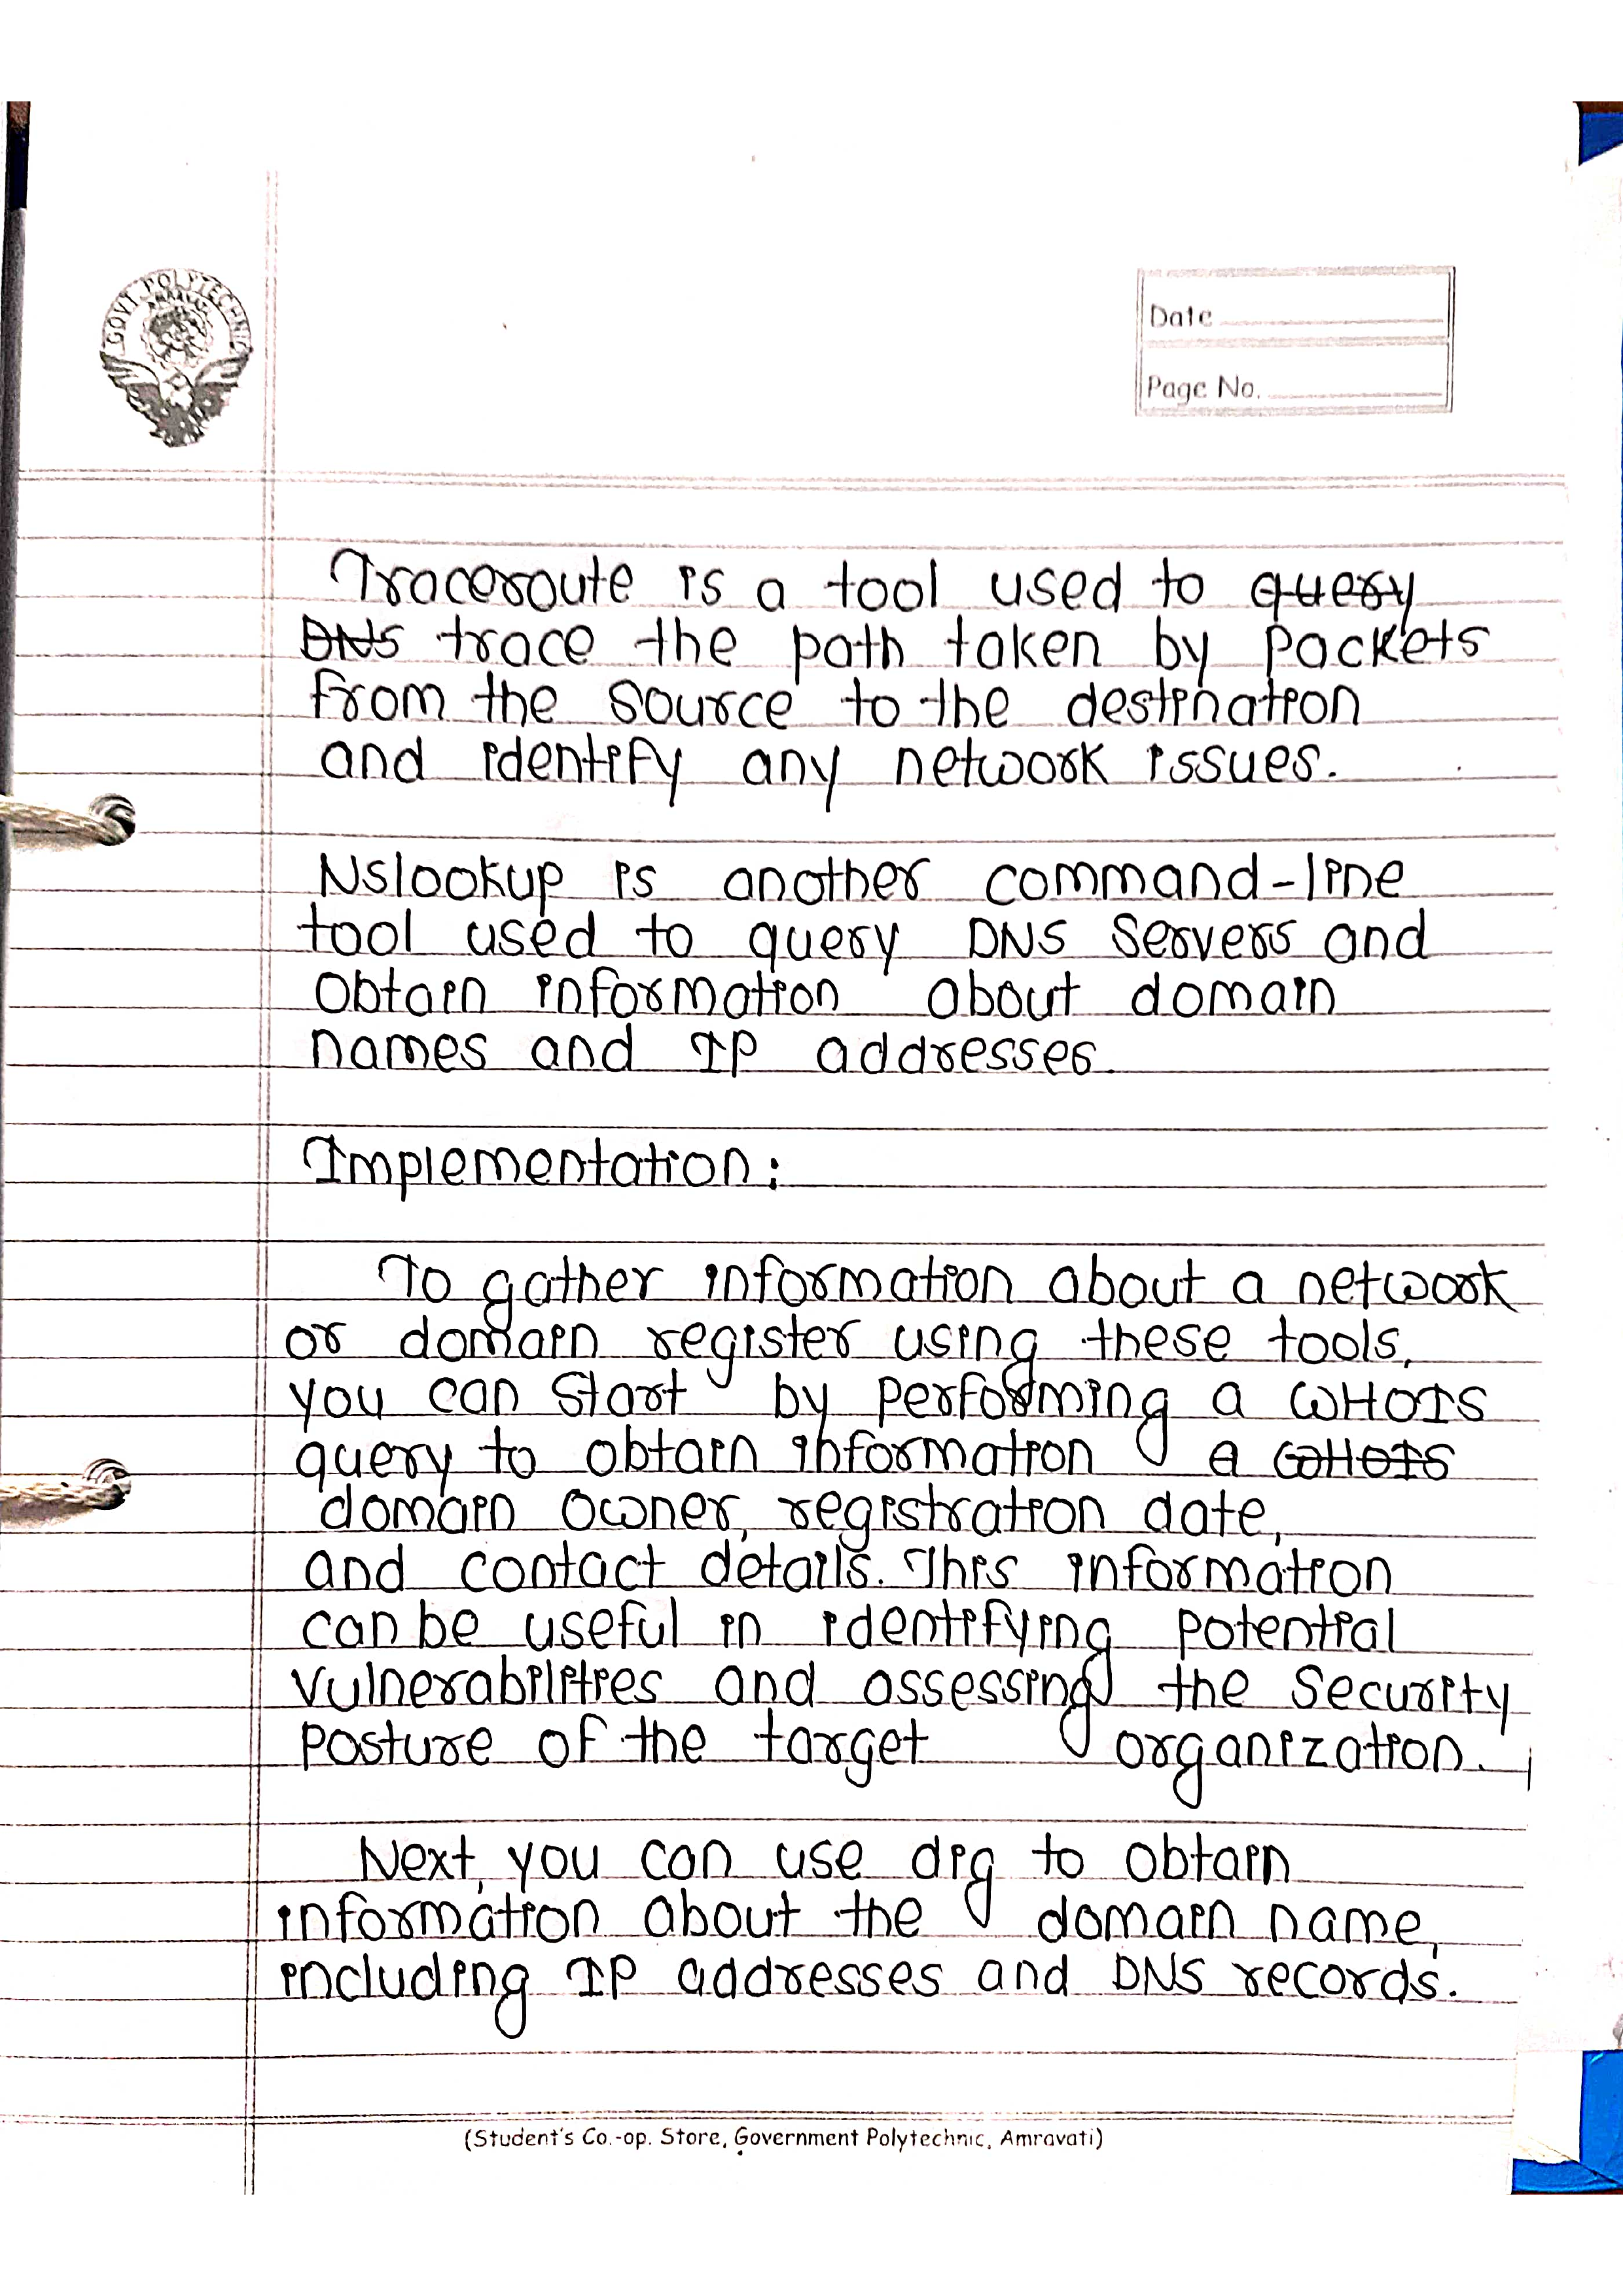 GOVT POLYTECHNIC
Date
Page No.
Traceroute is a tool used to query
DNS trace the path taken by packets
from the source to the destination
and identify any network issues.
Nslookup is another command-line
tool used to query DNS Servers and
obtain information about domain
names and IP addresses.
Implementation:
To gather information about a network
or domain register using these tools,
you can start by performing a WHOIS
query to obtain information a WHOIS
domain owner, registration date,
and contact details. This information
can be useful in identifying potential
vulnerabilities and assessing the security
posture of the target organization.
Next, you can use dig to obtain
information about the domain name,
including IP addresses and DNS records.
(Student's Co.-op. Store, Government Polytechnic, Amravati)